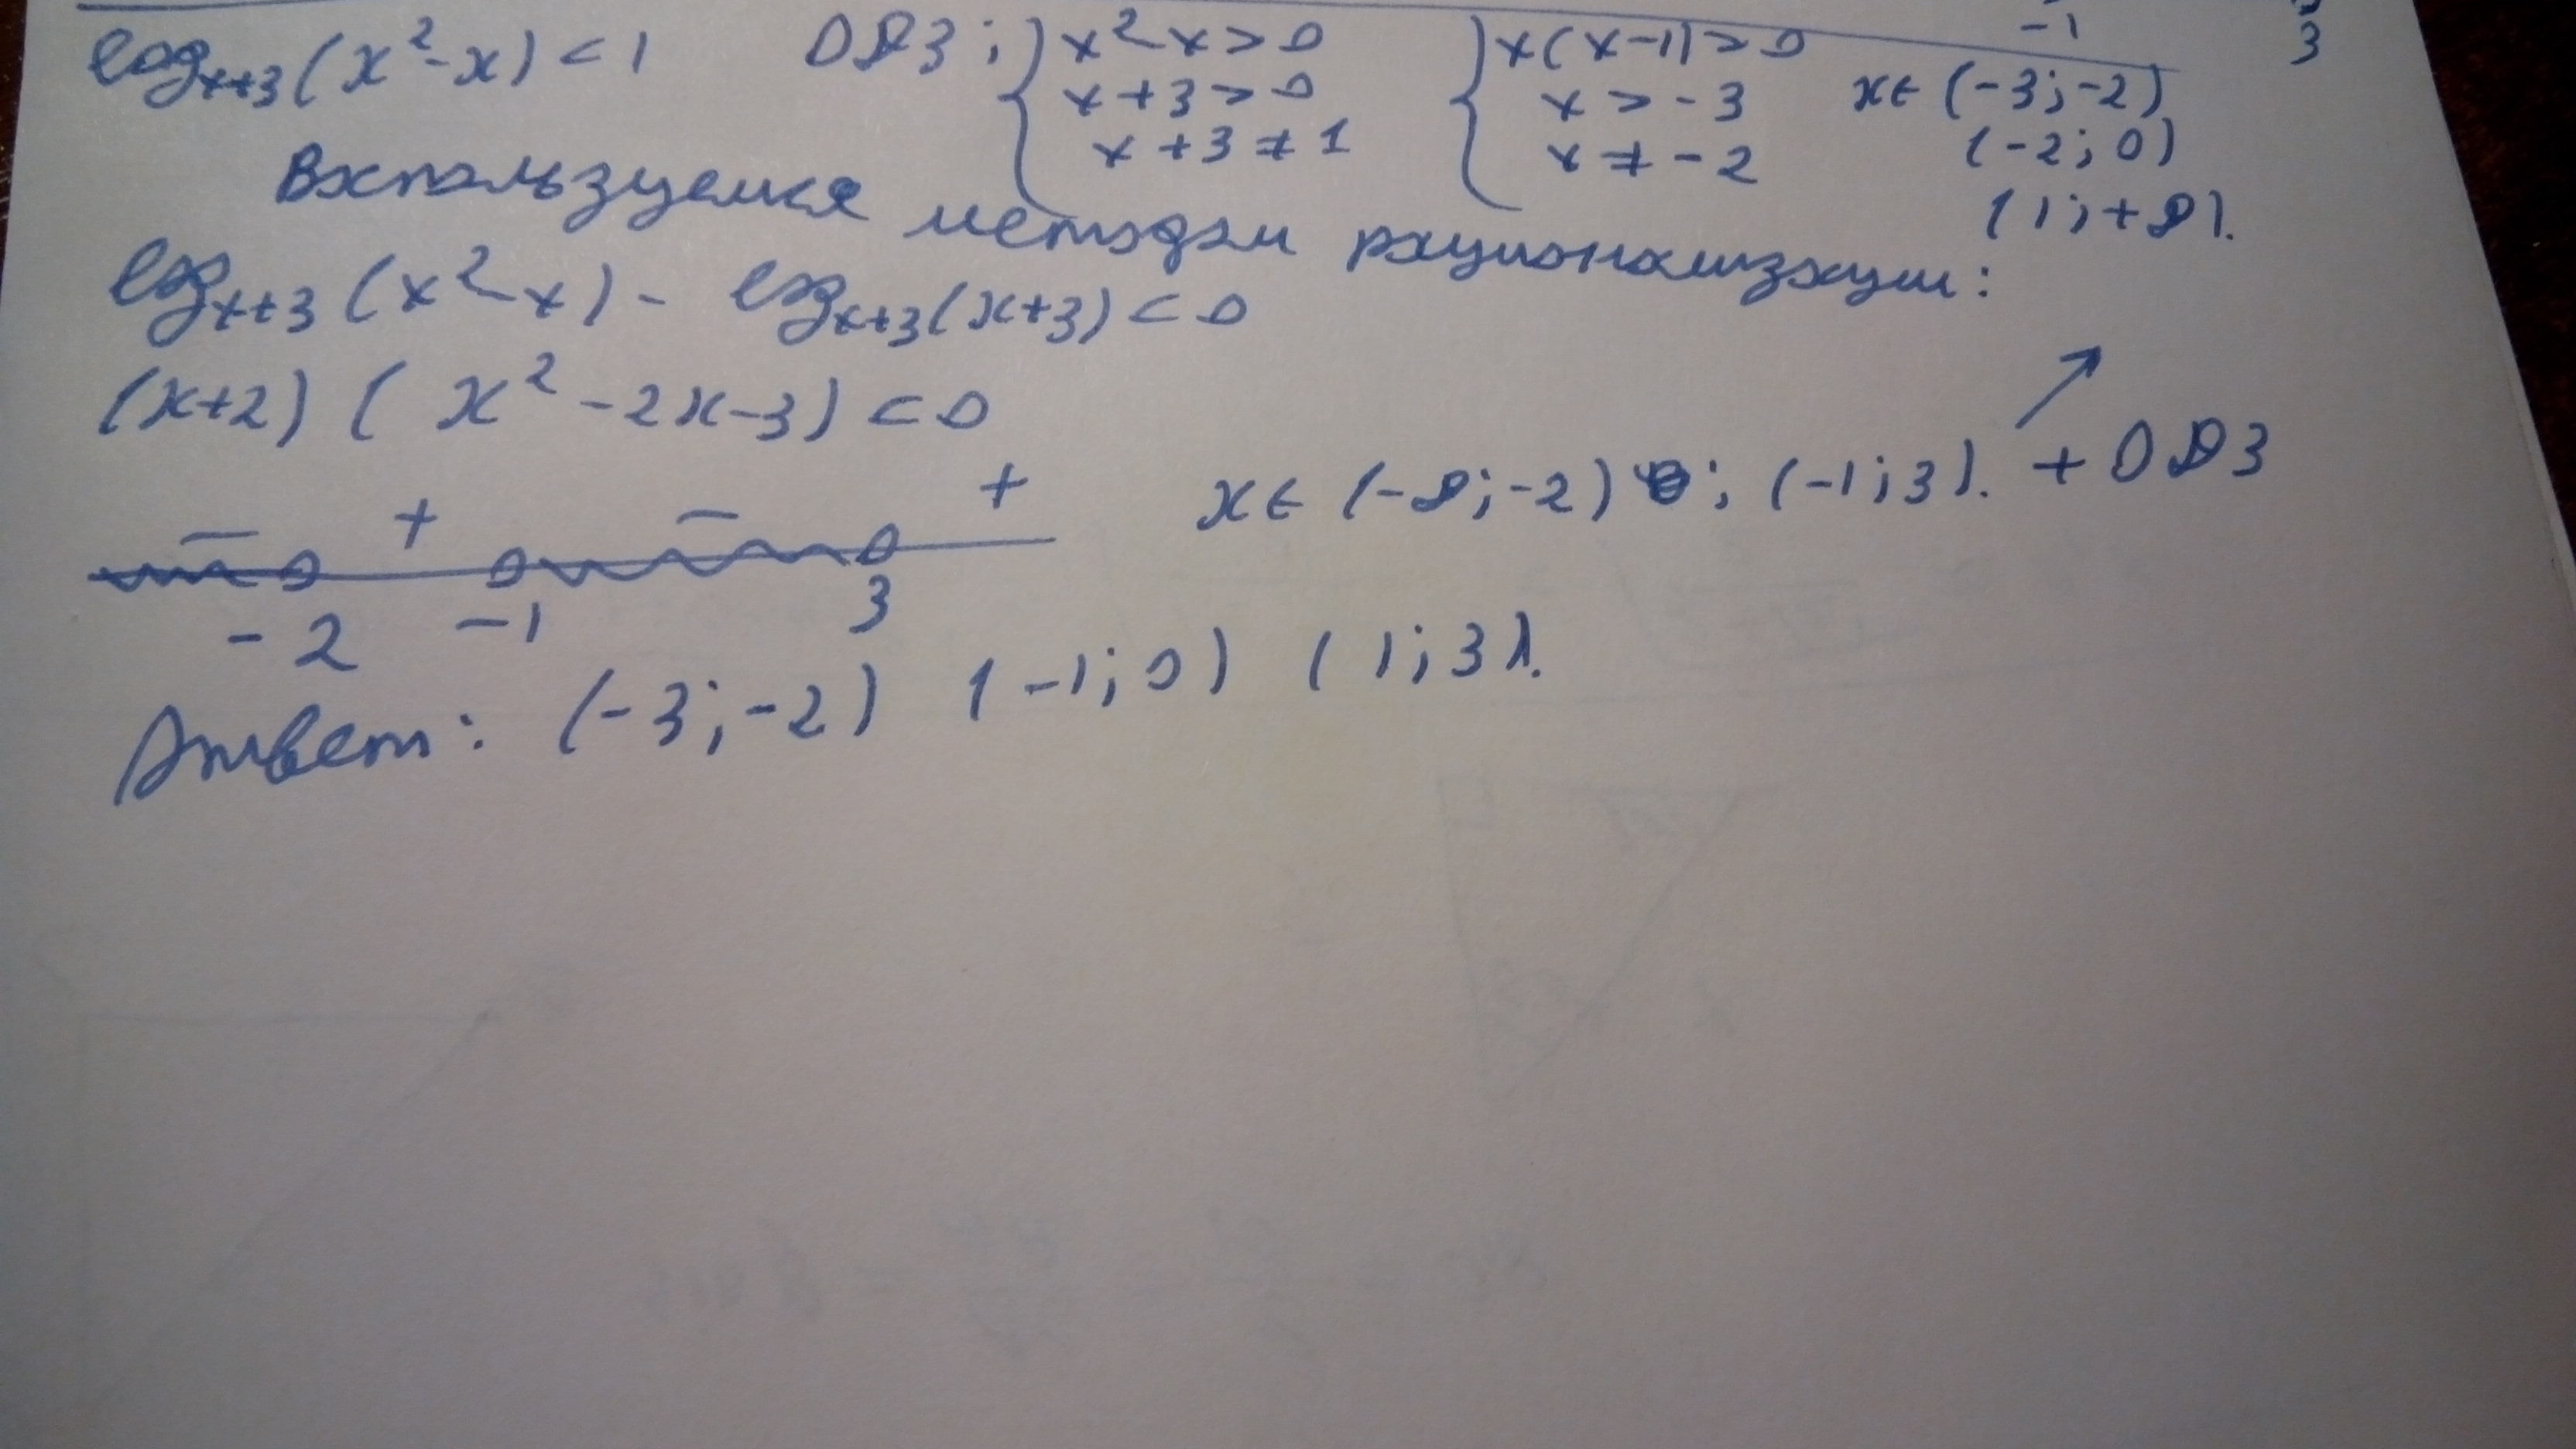 -1 3
log_{x+3}(x²-x) < 1 ОДЗ: { x²-x>0 { x(x-1)>0
x+3>0 x > -3 x∈ (-3; -2)
x+3≠1 x ≠ -2 (-2; 0)
(1; +∞).
Воспользуемся методом рационализации:
log_{x+3}(x²-x) - log_{x+3}(x+3) < 0
(x+2) (x²-2x-3) < 0
x∈ (-∞; -2) ; (-1; 3). + ОДЗ
- + - +
-2 -1 3
Ответ: (-3; -2) (-1; 0) (1; 3).